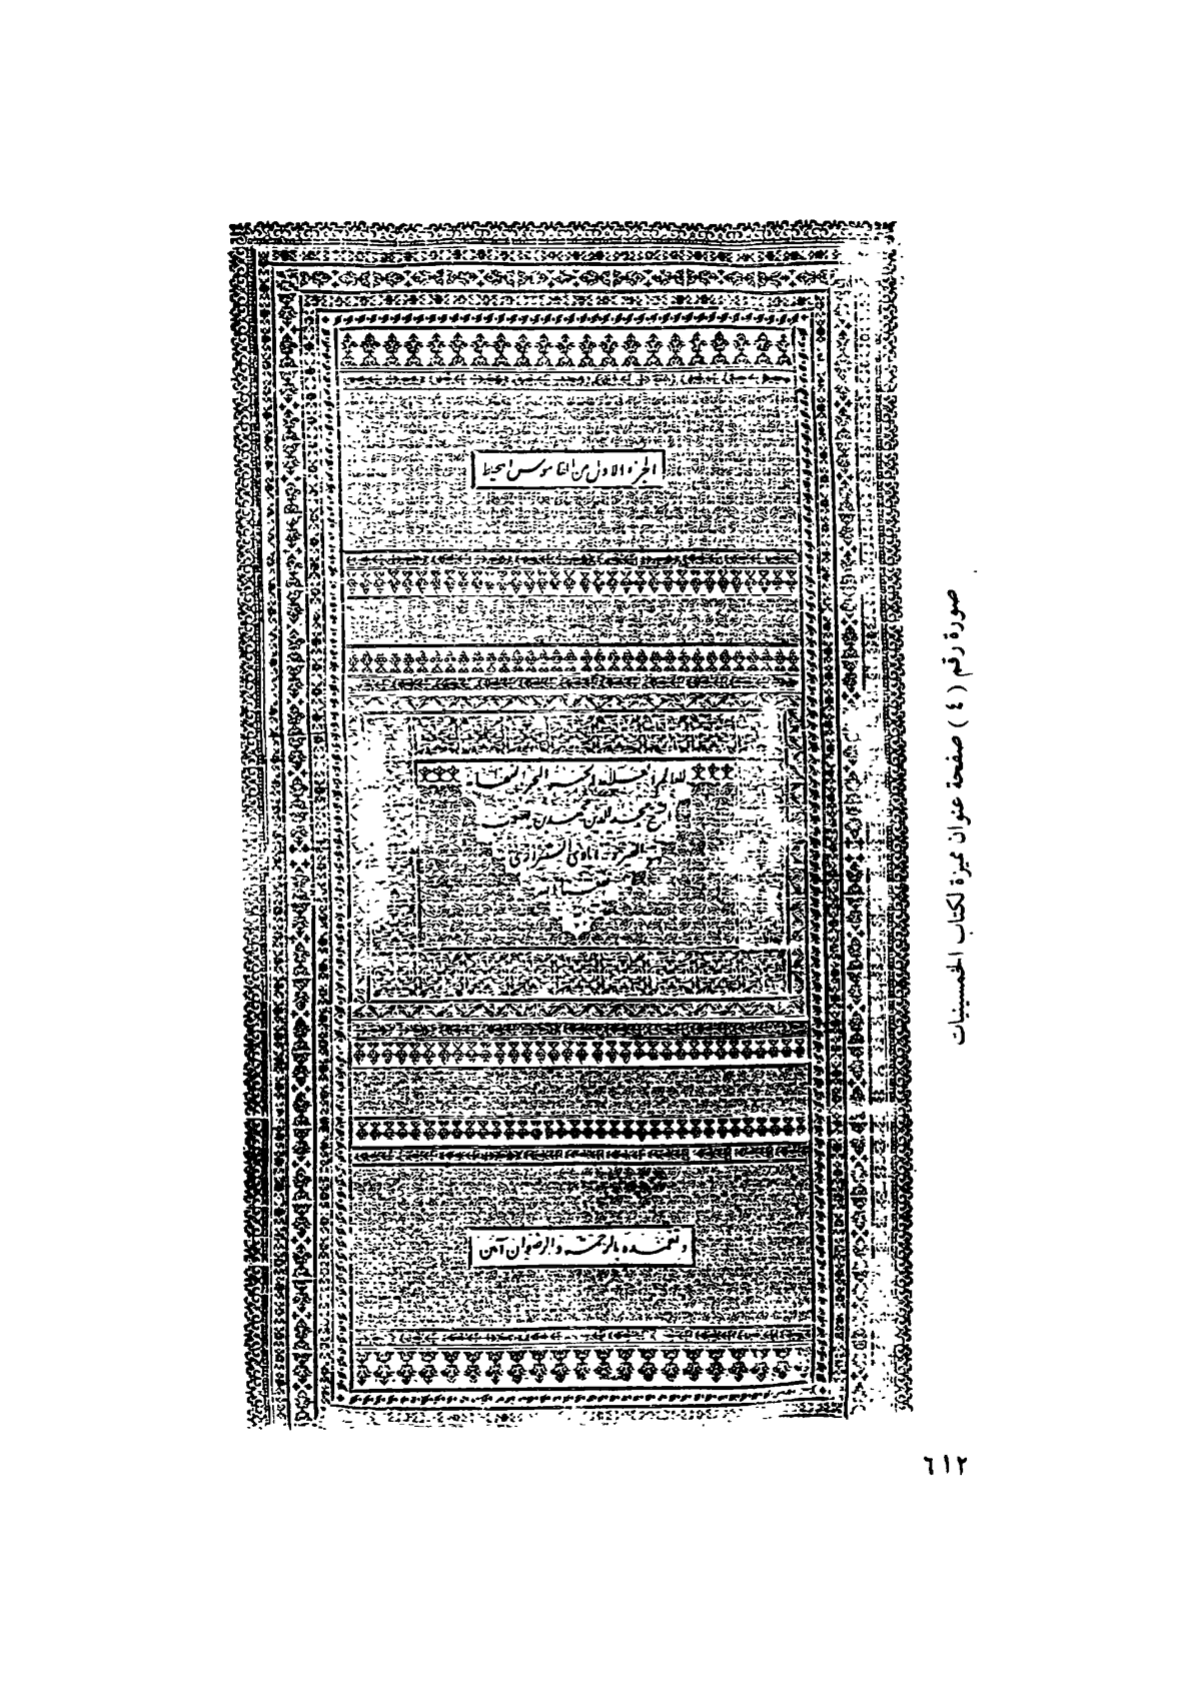 الجزء الاول من القاموس المحيط
للعالم العلامة الحبر البحر الفهامة
الشيخ مجد الدين محمد بن يعقوب
الفيروزابادى الشيرازى
وتغمده بالرحمة والرضوان آمين
صورة رقم ( ٤ ) صفحة عنوان مميزة لكتاب الخمسينات
٦١٢